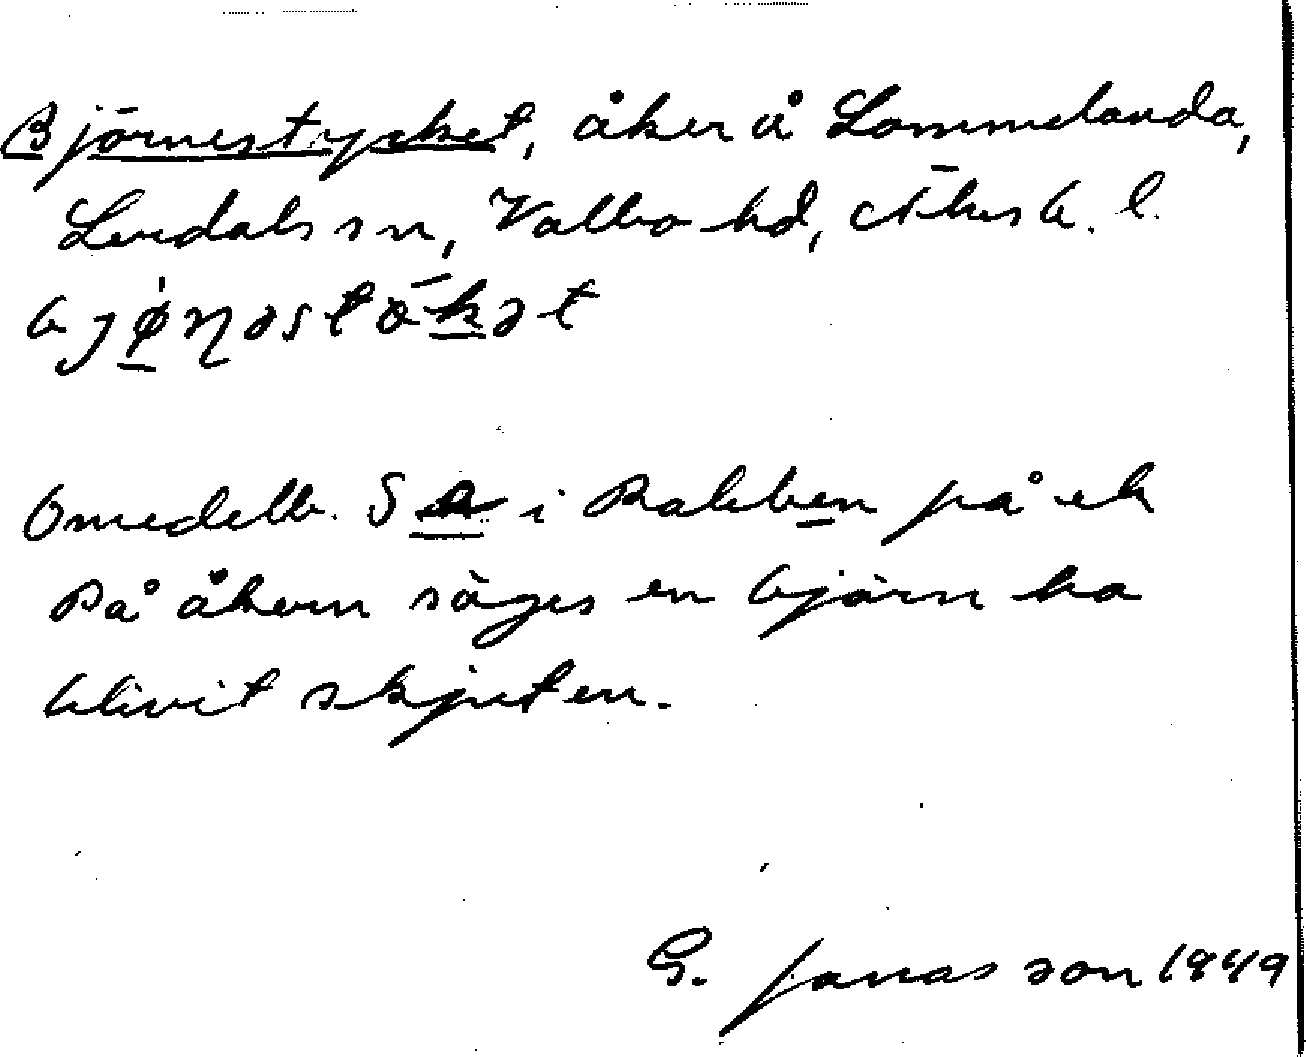 Björnestycket, åker å Lommelanda,
Lerdals sn, Valbo hd, Älvsb. l.
Omedelb. S i Rabben på ek
På åkern säges en björn ha
blivit skjuten.
G. Jonasson 1949